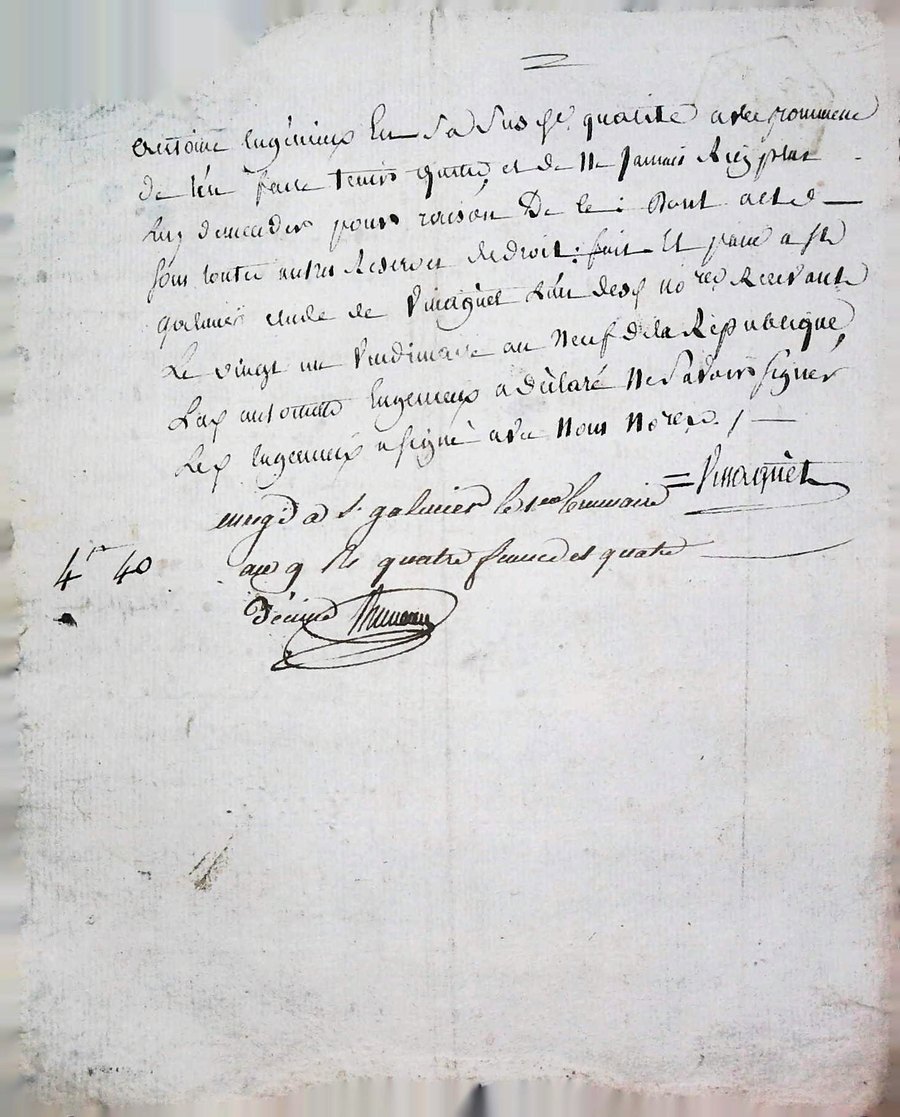 antoine Ingénieux En sa susd.e qualité avec promesse
de l'en faire tenir quitte et de ne jamais Rien plus
Luy demander pour raison De ce : Dont acte
sous toutes autres Reserves de droit : fait Et passé a st
galmier étude de Vinagnet L'un des no.res Recevant
Le vingt un Vendimaire an Neuf de la République,
antoine Ingenieux a déclaré Ne savoir signer
Ingenieux a signé avec Nous No.re
= Vinagnet
enregé a St galmier le brumaire
an 9 quatre francs et quatre
4 40
décimes